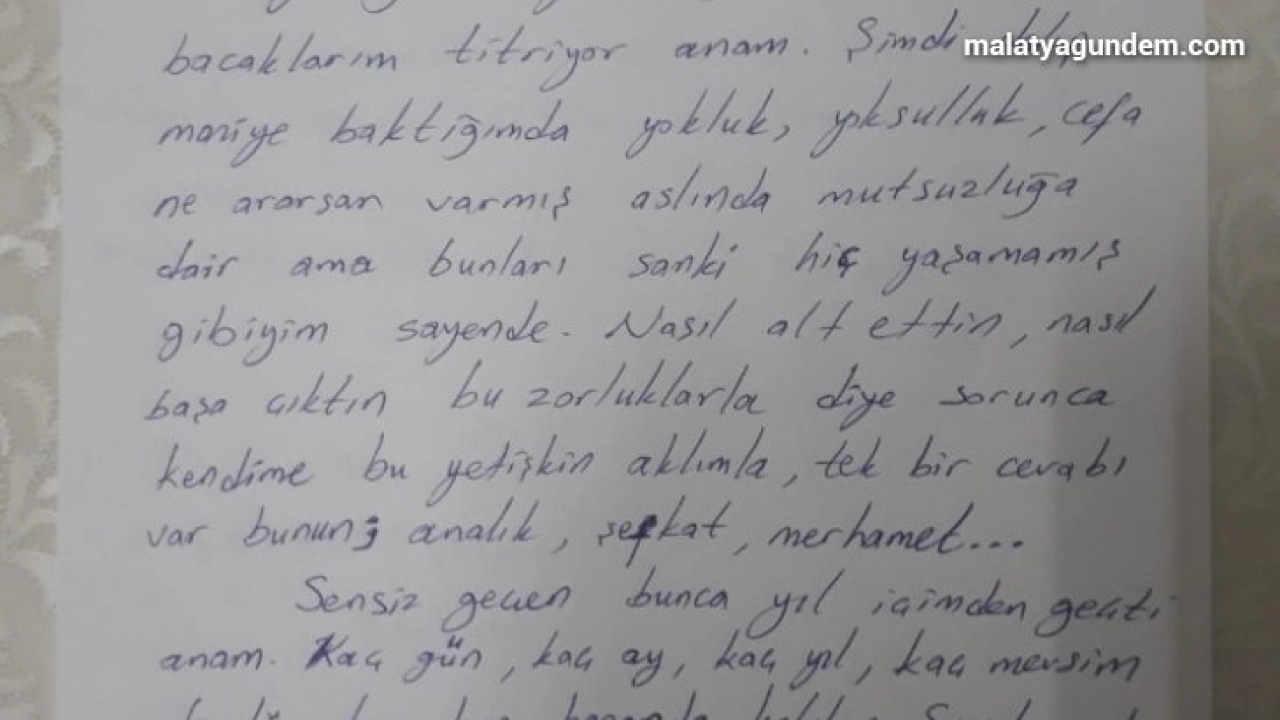 malatyagundem.com
bacaklarım titriyor anam. Şimdi
maziye baktığımda yokluk, yoksulluk, cefa
ne ararsan varmış aslında mutsuzluğa
dair ama bunları sanki hiç yaşamamış
gibiyim sayende. Nasıl alt ettin, nasıl
başa çıktın bu zorluklarla diye sorunca
kendime bu yetişkin aklımla, tek bir cevabı
var bunun; analık, şefkat, merhamet...
Sensiz geçen bunca yıl içimden geçti
anam. Kaç gün, kaç ay, kaç yıl, kaç mevsim